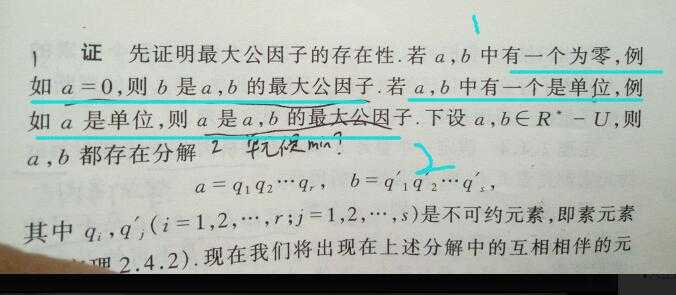 1
1 证 先证明最大公因子的存在性.若 a,b 中有一个为零,例
如 a=0,则 b 是 a,b 的最大公因子.若 a,b 中有一个是单位,例
如 a 是单位,则 a 是 a,b 的最大公因子.下设 a,b∈R*-U,则
a,b 都存在分解 2 min?
2
a=q₁q₂⋯qᵣ, b=q′₁q′₂⋯q′ₛ,
其中 qᵢ,q′ⱼ(i=1,2,⋯,r;j=1,2,⋯,s)是不可约元素,即素元素
理 2.4.2).现在我们将出现在上述分解中的互相相伴的元